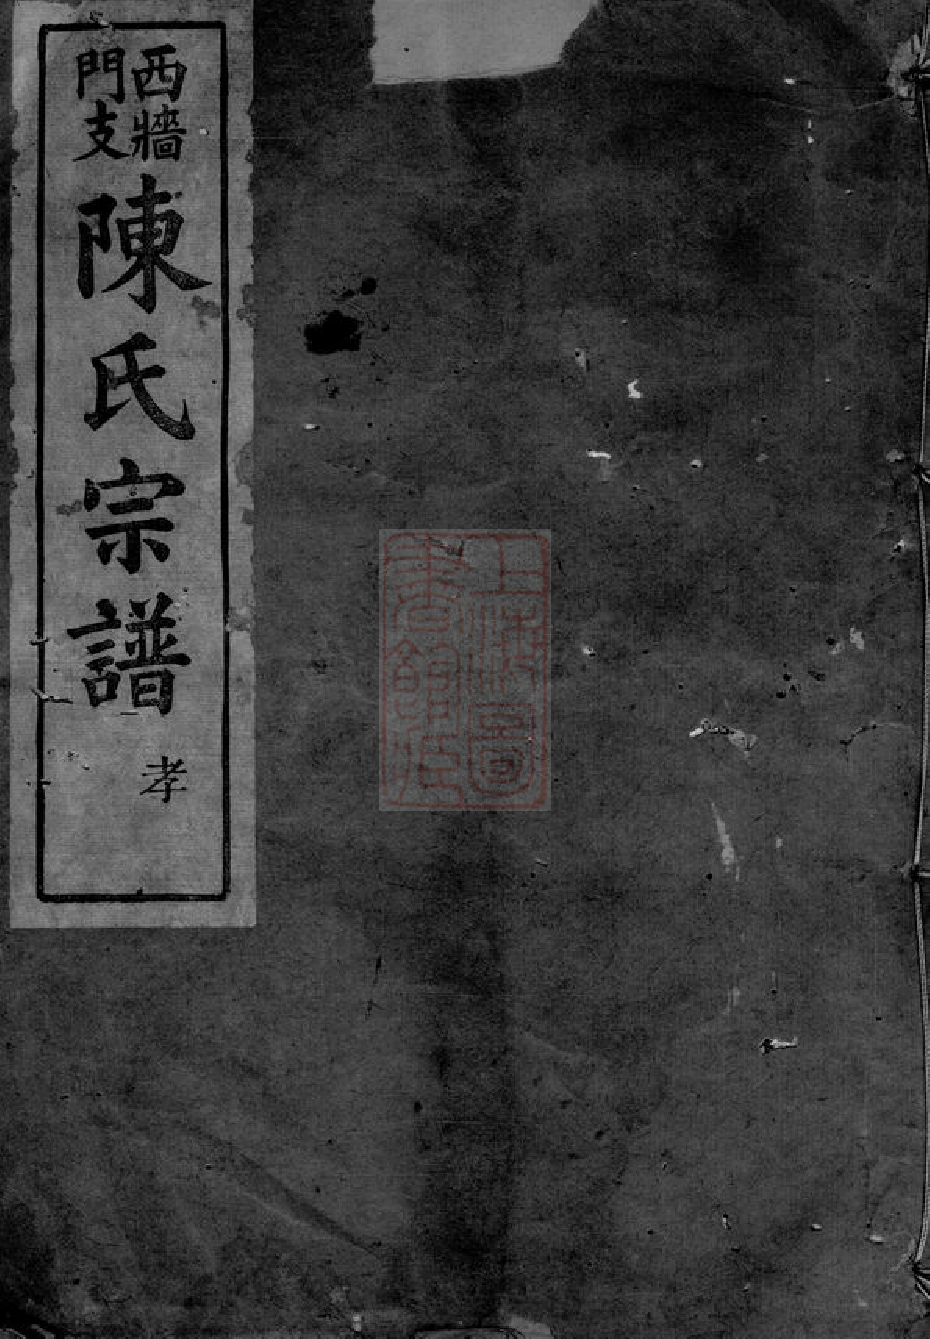 西牆
門支
陳氏宗譜
孝
上海圖
書館藏